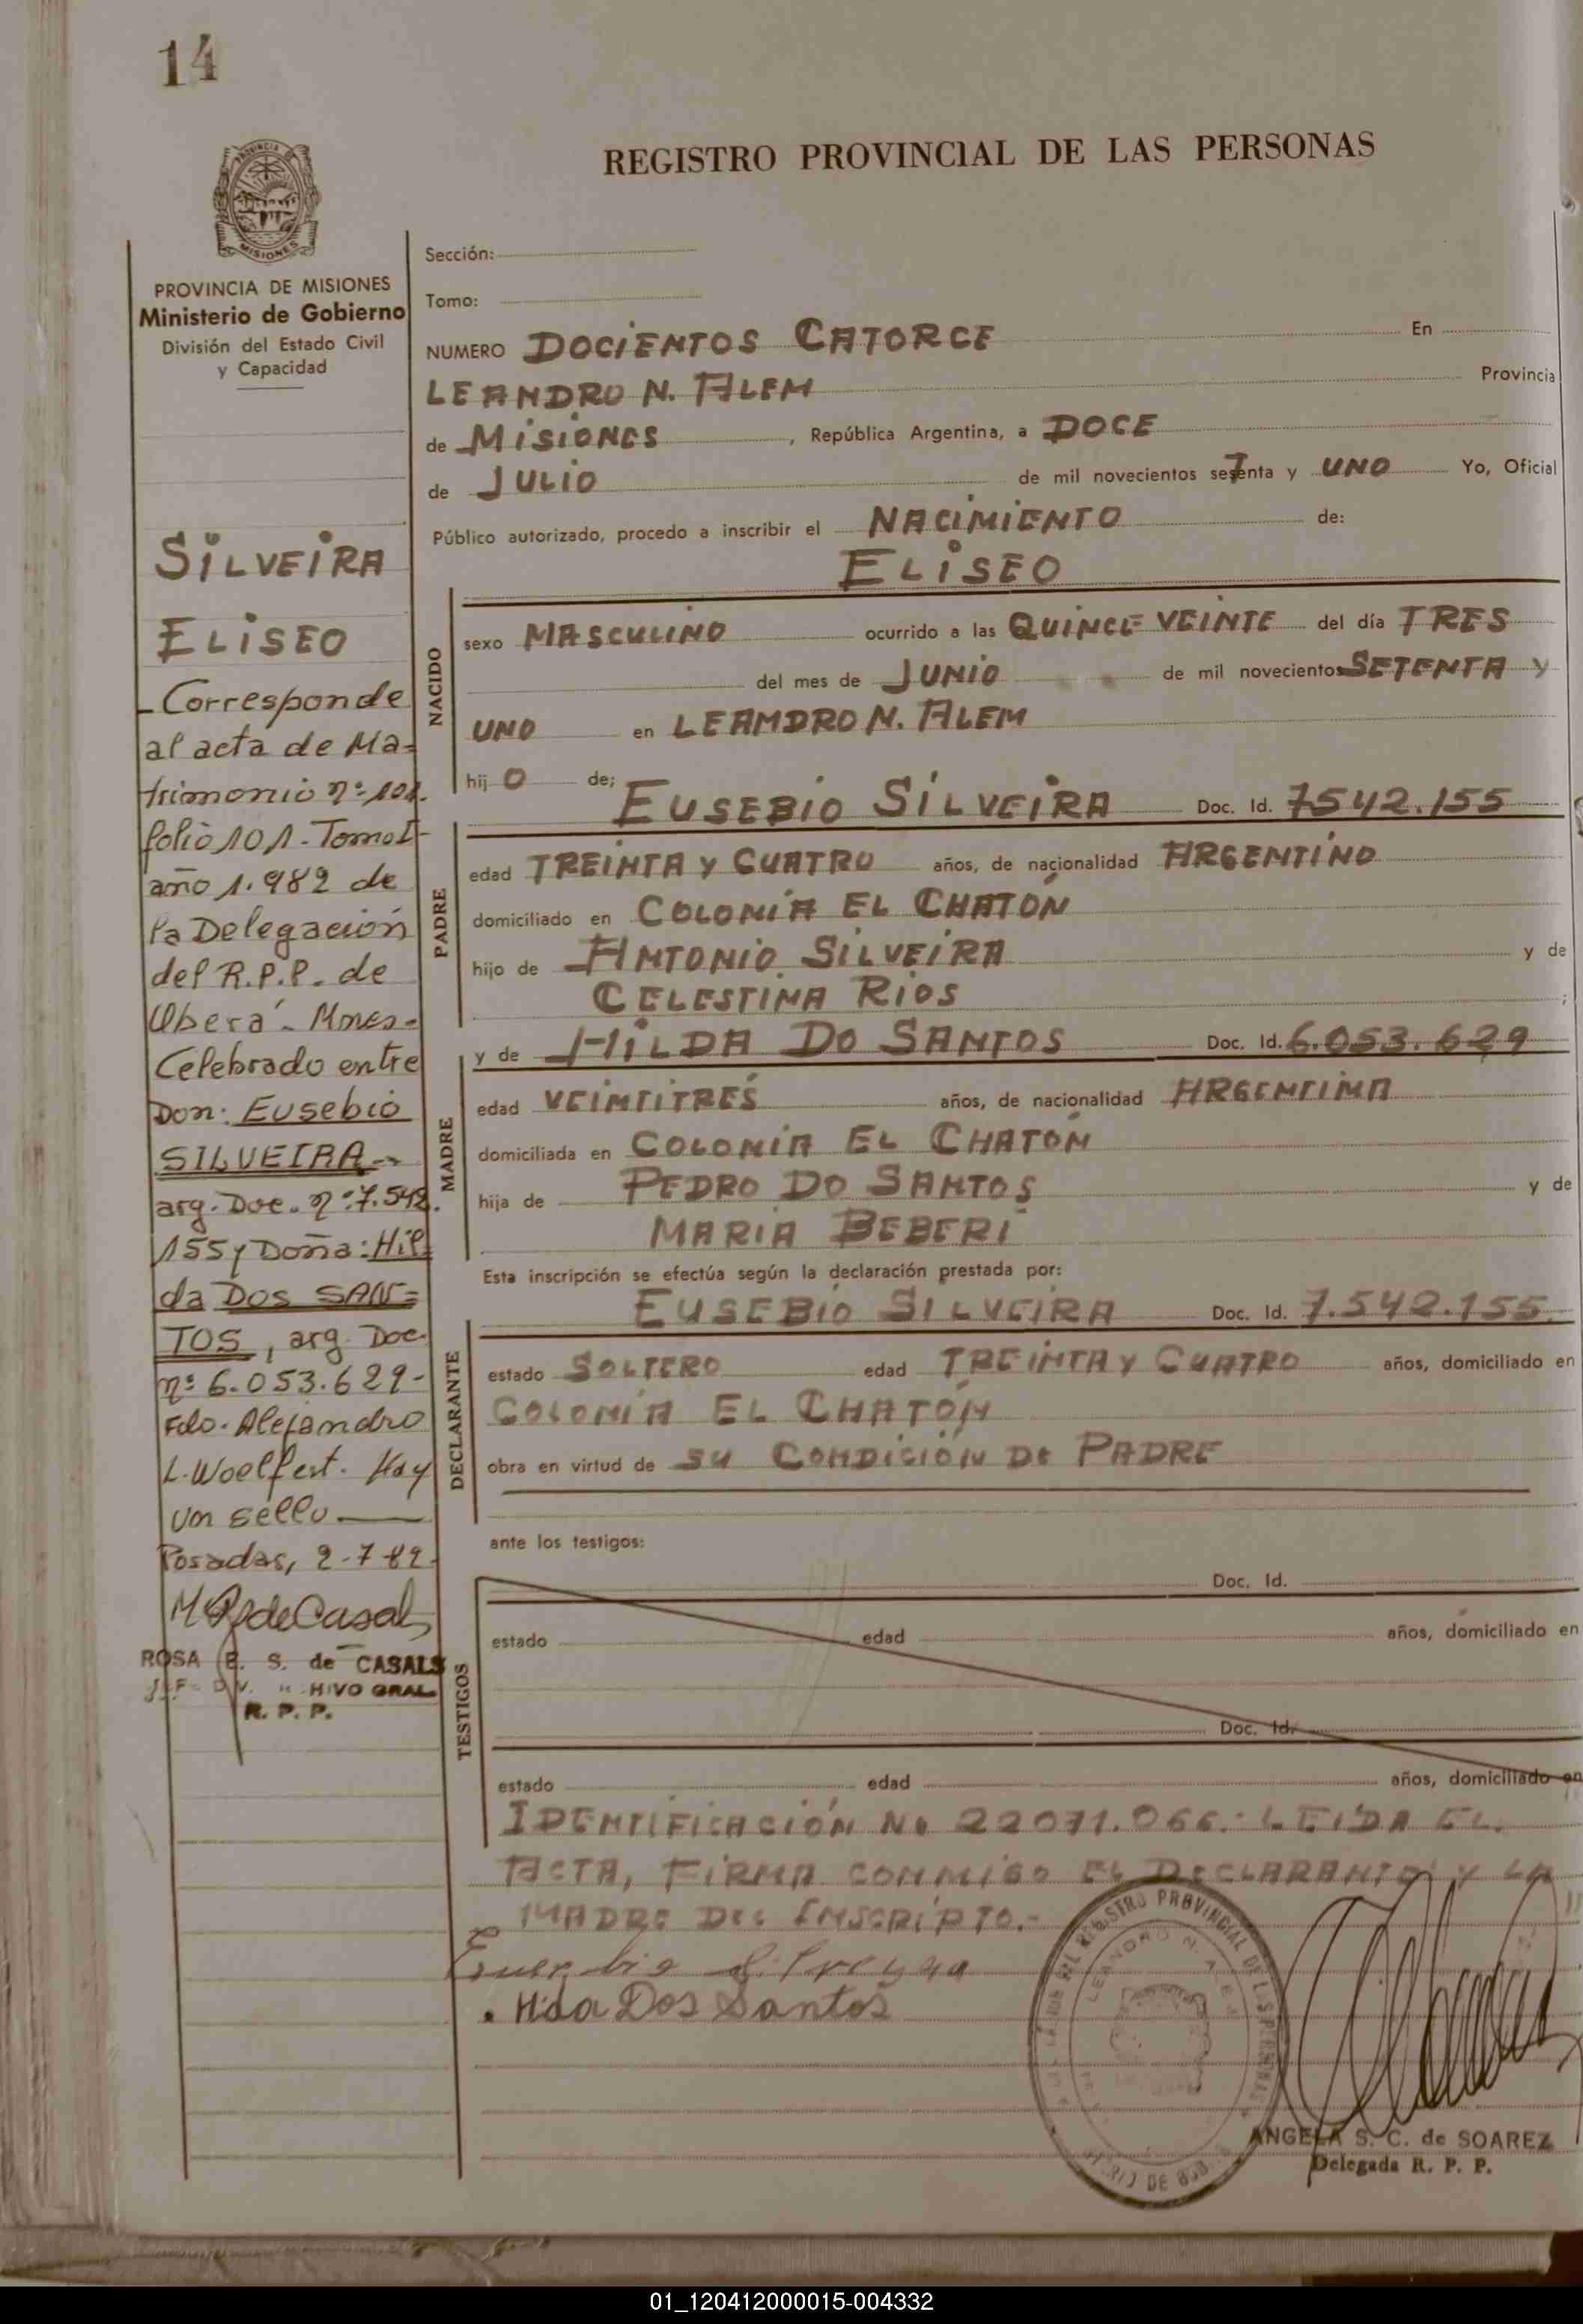 14
REGISTRO PROVINCIAL DE LAS PERSONAS
PROVINCIA DE MISIONES
Ministerio de Gobierno
División del Estado Civil
y Capacidad
SILVEIRA
ELISEO
Corresponde
al acta de Ma-
trimonio nº 101.
folio 101 - Tomo I -
año 1.982 de
la Delegación
del R.P.P. de
Oberá - Mnes.-
Celebrado entre
Don: Eusebio
SILVEIRA --
arg. Doc. nº 7.542.
155 y Doña: Hil-
da DOS SAN=
TOS, arg. Doc.
nº 6.053.629 -
Fdo. Alejandro
L. Woelfert. Hay
un sello
Posadas, 2-7-82.
ROSA E. S. de CASALS
R. P. P.
Sección:
Tomo:
NUMERO DOCIENTOS CATORCE En
LEANDRO N. ALEM Provincia
de MISIONES, República Argentina, a DOCE
de JULIO de mil novecientos se7enta y UNO Yo, Oficial
Público autorizado, procedo a inscribir el NACIMIENTO de:
ELISEO
NACIDO
sexo MASCULINO ocurrido a las QUINCE VEINTE del día TRES
del mes de JUNIO de mil novecientos SETENTA y
UNO en LEANDRO N. ALEM
hijO de;
EUSEBIO SILVEIRA Doc. Id. 7542.155
PADRE
edad TREINTA Y CUATRO años, de nacionalidad ARGENTINO
domiciliado en COLONIA EL CHATÓN
hijo de ANTONIO SILVEIRA y de
CELESTINA RIOS ;
y de HILDA DO SANTOS Doc. Id. 6.053.629
MADRE
edad VEINTITRES años, de nacionalidad ARGENTINA
domiciliada en COLONIA EL CHATÓN
hija de PEDRO DO SANTOS y de
MARIA BEBERI
Esta inscripción se efectúa según la declaración prestada por:
EUSEBIO SILVEIRA Doc. Id. 7.542.155
DECLARANTE
estado SOLTERO edad TREINTA Y CUATRO años, domiciliado en
COLONIA EL CHATÓN
obra en virtud de SU CONDICIÓN DE PADRE
ante los testigos:
TESTIGOS
Doc. Id.
estado edad años, domiciliado en
Doc. Id.
estado edad años, domiciliado en
IDENTIFICACIÓN No 22071.066.- LEIDA EL
ACTA, FIRMA CONMIGO EL DECLARANTE Y LA
MADRE DEL INSCRIPTO.-
Hida Dos Santos
ANGELA S. C. de SOAREZ
Delegada R. P. P.
01_120412000015-004332